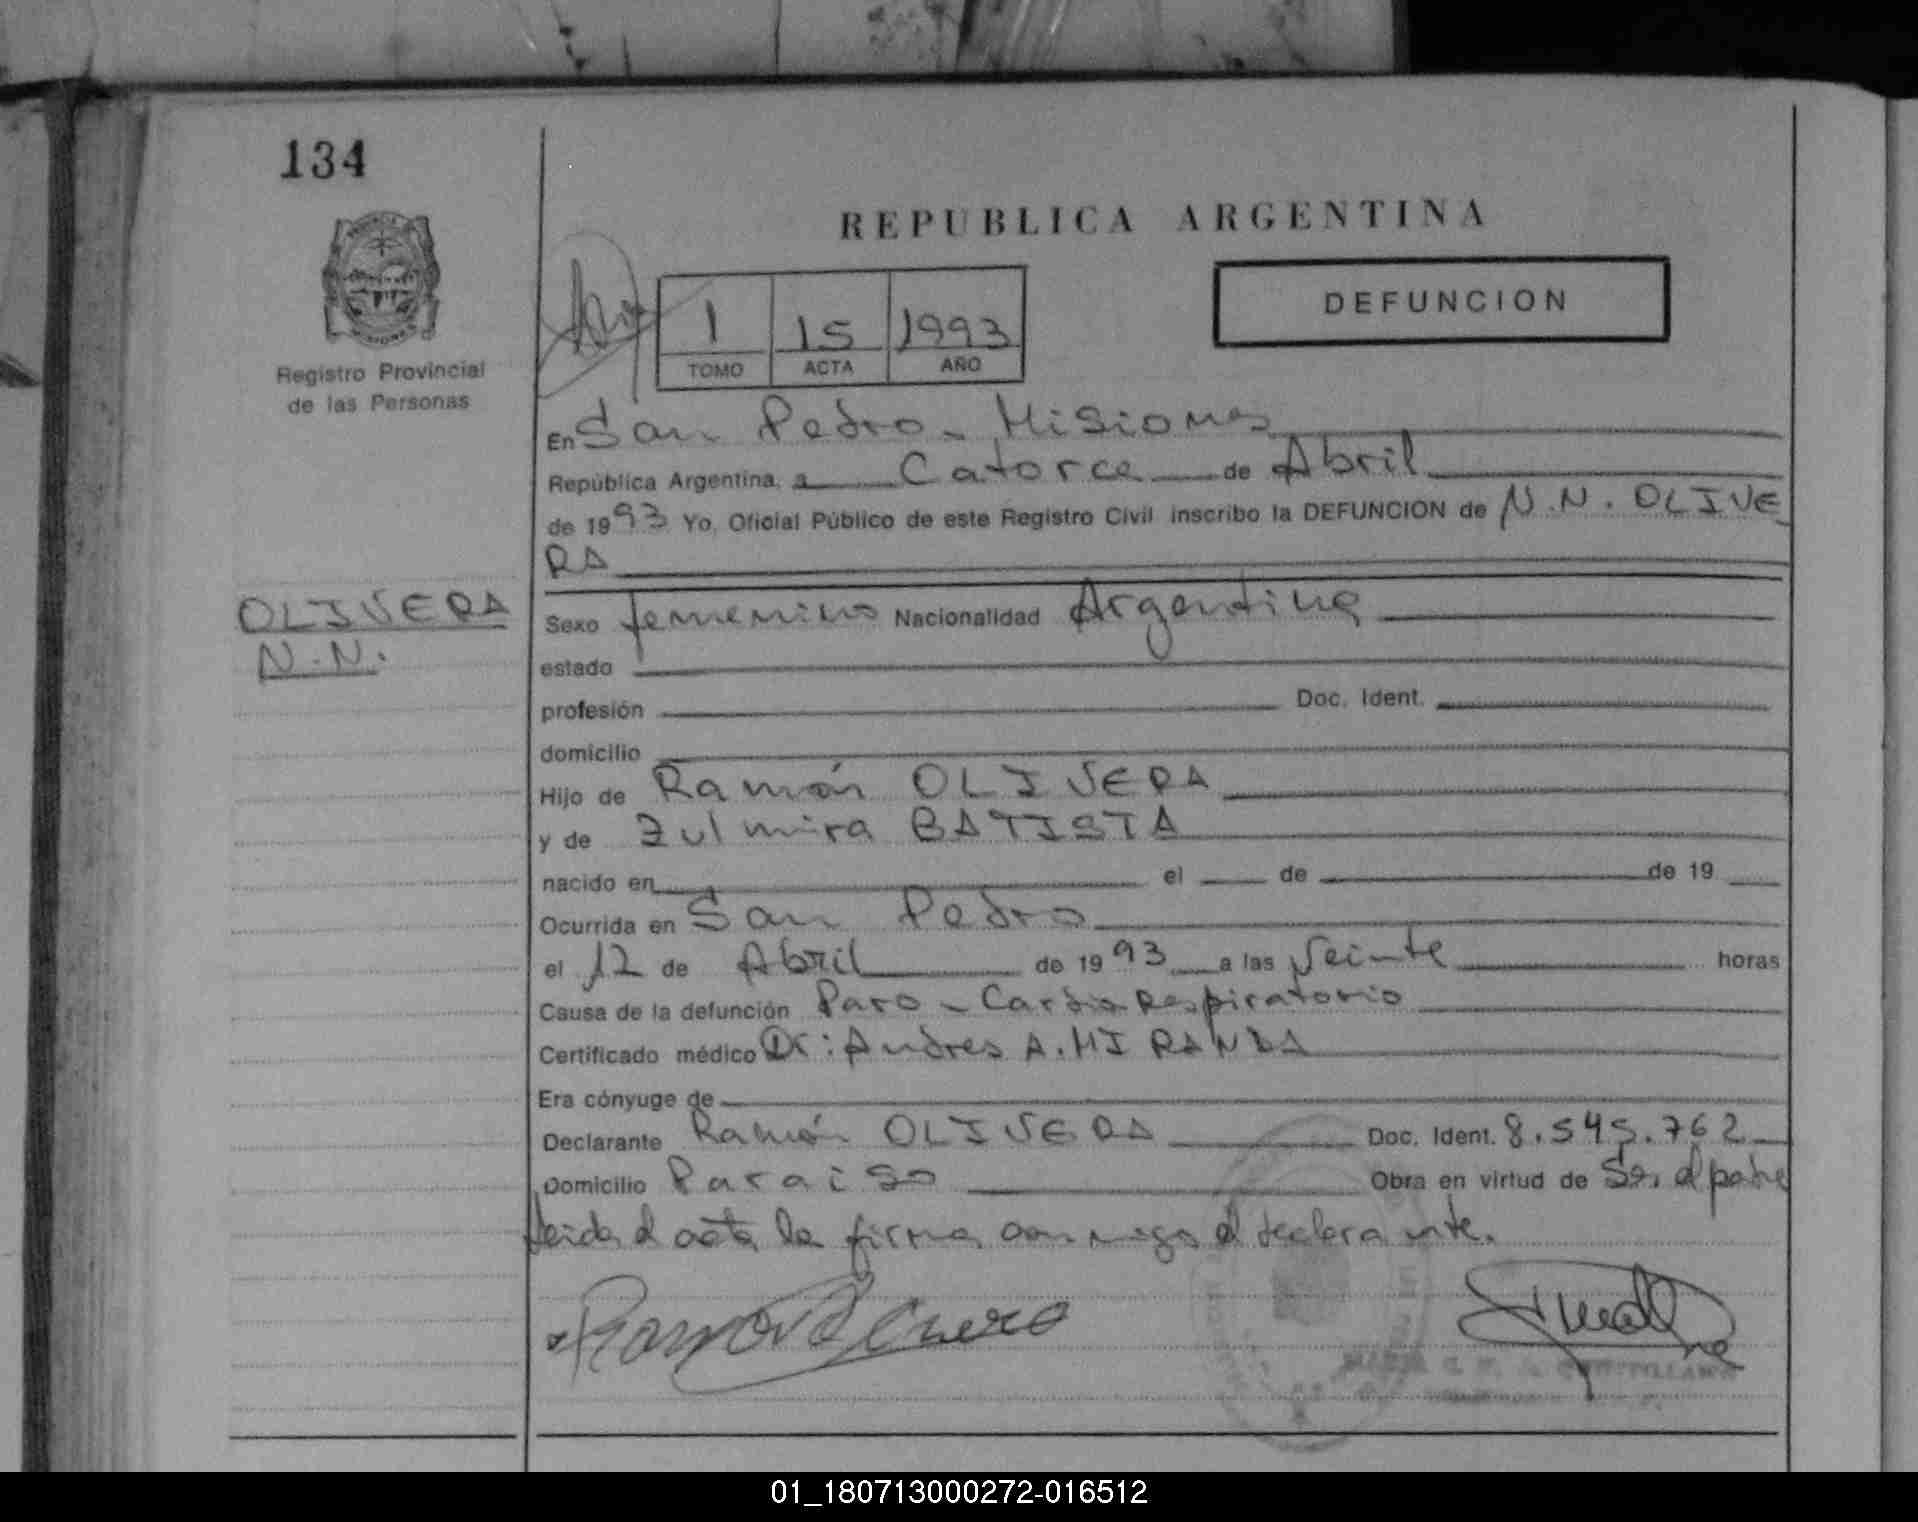 134
REPUBLICA ARGENTINA
DEFUNCION
1 15 1993
TOMO ACTA AÑO
Registro Provincial
de las Personas
En San Pedro - Misiones
República Argentina, a Catorce de Abril
de 1993 Yo, Oficial Público de este Registro Civil inscribo la DEFUNCION de N.N. OLIVE
RA
OLIVERA
N.N.
Sexo femenino Nacionalidad Argentina
estado
profesión Doc. Ident.
domicilio
Hijo de Ramón OLIVERA
y de Zulmira BATISTA
nacido en el de de 19
Ocurrida en San Pedro
el 12 de Abril de 1993 a las Veinte horas
Causa de la defunción Paro - Cardio Respiratorio
Certificado médico Dr: Andres A. MIRANDA
Era cónyuge de
Declarante Ramón OLIVERA Doc. Ident. 8.545.762
Domicilio Paraiso Obra en virtud de Ser el padre
leida el acta la firma conmigo el declarante.
01_180713000272-016512